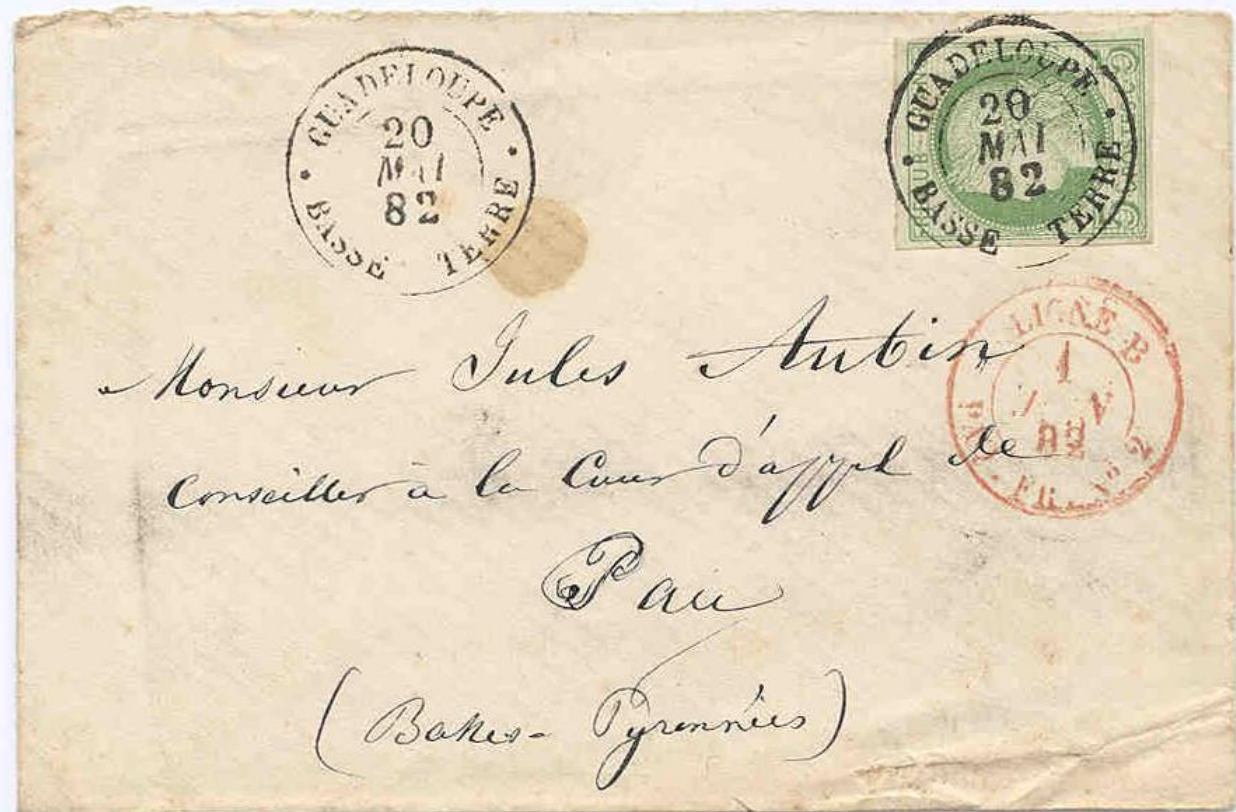 GUADELOUPE
20
MAI
82
BASSE TERRE
GUADELOUPE
20
MAI
82
BASSE TERRE
LIGNE B
1
82
PAQ. FR. Nº 2
Monsieur Jules Aubin
Conseiller à la Cour d'appel de
Pau
(Basses-Pyrennées)